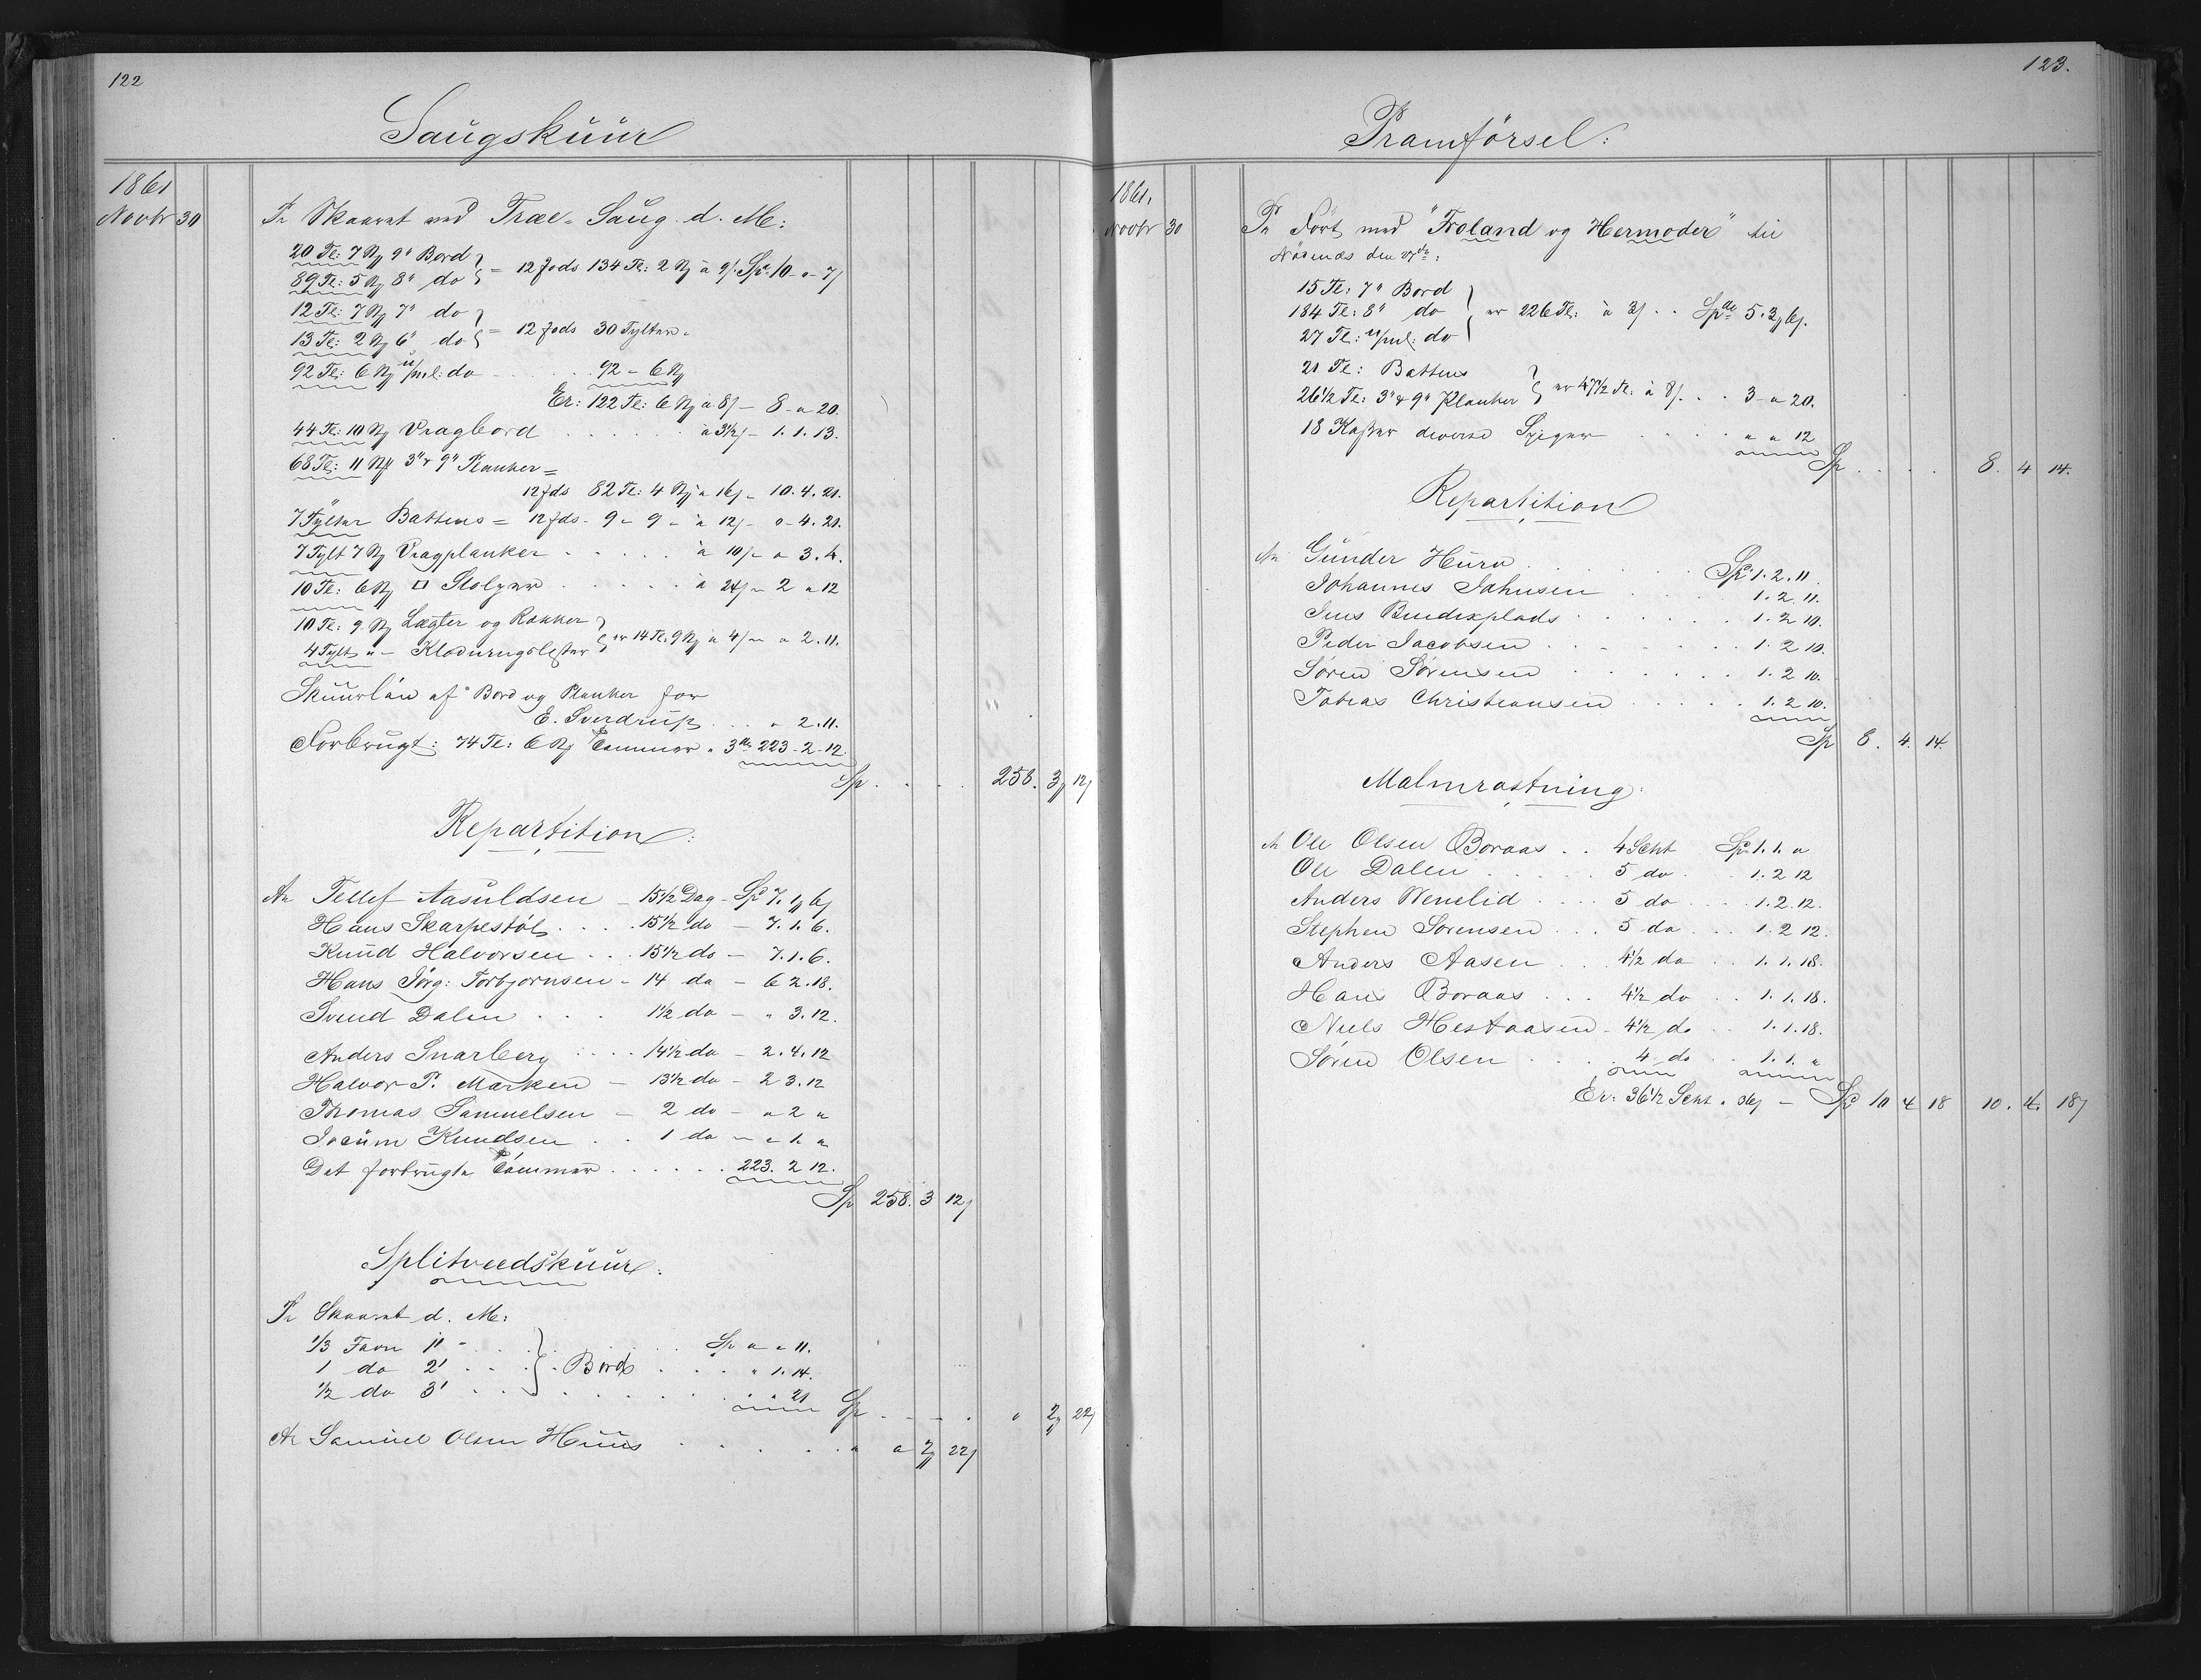 122
Saugskuur
1861
Novbr 30
Pr Skaaret ved Træ-Saug d. M:
20 Tl: 7 N 9" Bord
89 Tl: 5 N 8" do = 12 fods 134 Tl: 2 N à 9/ Spd 10 - " - 7/
12 Tl: 7 N 7" do
13 Tl: 2 N 6" do = 12 fods 30 Tylter
92 Tl: 6 N u/ml: do . . . 92 - 6 N
Er: 122 Tl: 6 N à 8/ - 8 - " 20.
44 Tl: 10 N Vragbord . . . . à 3½/ - 1. 1. 13.
68 Tl: 11 N 3" & 9" Planker =
12 fds 82 Tl: 4 N à 16/ - 10. 4. 21.
7 Tylter Battens = 12 fds - 9 - 9 - à 12/ - " - 4. 21.
7 Tylt 7 N Vragplanker . . . . . à 10/ - " 3. 4.
10 Tl: 6 N □ Stolper . . . . . à 24/ - 2 " 12
10 Tl: 9 N Lægter og Rækker
4 Tylt " - Klædningslester er 14 Tl: 9 N à 4/ - " 2. 11.
Skuurløn af Bord og Planker for
E. Sverdrup . . . " 2. 11.
Forbrugt: 74 Tl: 6 N Tømmer à 3 223 - 2 - 12
Sp . . . . 258. 3 12/
Repartition:
An Tellef Aasuldsen - 15½ Dag - Spd 7. 1 6/
Hans Skarpestøl . . . . 15½ do - 7. 1. 6.
Knud Halvorsen . . . 15½ do - 7. 1. 6.
Hans Jörg: Torbjornsen - 14 do - 6 2. 18.
Svend Dalen . . . 1½ do - " 3. 12.
Anders Snarberg . . . . 14½ do - 2. 4. 12
Halvor P. Marken - 13½ do - 2 3. 12
Thomas Samuelsen - 2 do - " 2 "
Jocum Knudsen . . 1 do - " 1. "
Det forbrugte Tømmer . . . . . . 223. 2 12.
Sp 258. 3 12/
Splitveedskuur:
Pr Skaaret d. M:
1/3 Favn 1' . . . Sp " " 11.
1 do 2' . . . Bord . . . . " 1. 14.
½ do 3' . . . . . . " " 21 Sp . . . . " 2 22/
An Samuel Olsen Huus . . . . . . " " 2 22/
123.
Pramförsel:
1861,
Novbr 30
Pr Fört med "Froland og Hermoder" til
Nösenæs den 27de:
15 Tl: 7" Bord
184 Tl: 8" do er 226 Tl: à 3/ . . Spd 5. 3 6/.
27 Tl: u/ml: do
21 Tl: Battens
26½ Tl: 3" & 9" Planker er 47½ Tl: à 8/. . . 3 - " 20.
18 Kasser diverse Spiger . . . . " " 12
Sp . . . . 8. 4 14.
Repartition
An Günder Huro . . . . . . Spd 1. 2. 11.
Johannes Johnsen . . . . 1. 2. 11.
Jens Bendixplads . . . . . . 1. 2 10.
Peder Jacobsen . . . . . . 1. 2 10.
Søren Sørensen . . . . . . 1. 2 10.
Tobias Christiansen . . . . . 1. 2 10.
Sp 8. 4. 14.
Malmrøstning:
An Ole Olsen Boraas . . 4 Scht Spd 1. 1. "
Ole Dalen . . . . . 5 do . . 1. 2 12
Anders Wenelid . . . . 5 do . . . . 1. 2. 12.
Stephen Sorensen . . . 5 do . . . 1. 2 12.
Anders Aasen . . . 4½ do . . 1. 1. 18.
Hans Boraas . . . 4½ do . . 1. 1. 18.
Niels Hestaasen - 4½ do . . 1. 1. 18.
Søren Olsen . . . . 4 do . . 1. 1. "
Er: 36½ Scht à 36/ - Spd 10 4 18 10. 4. 18/